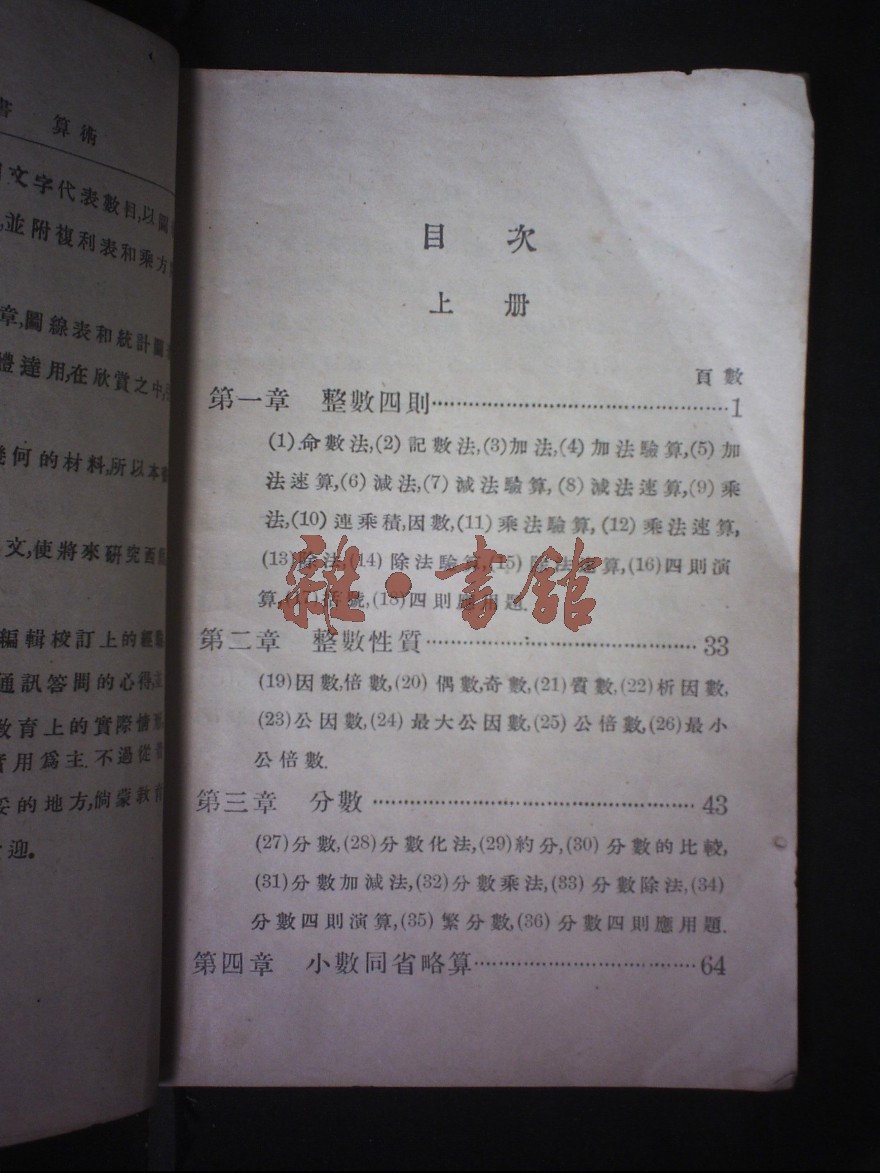 算術
文字代表數目,以圖
,並附複利表和乘方
章,圖線表和統計圖
體達用,在欣賞之中,
幾何的材料,所以本
文,使將來研究西
編輯校訂上的經驗
通訊答問的心得,
教育上的實際情形
實用爲主.不過從
妥的地方,倘蒙教育
迎。
目次
上册
頁數
第一章 整數四則……1
(1).命數法,(2)記數法,(3)加法,(4)加法驗算,(5)加
法速算,(6)減法,(7)減法驗算,(8)減法速算,(9)乘
法,(10)連乘積,因數,(11)乘法驗算,(12)乘法速算,
(13)除法,(14)除法驗算,(15)除法速算,(16)四則演
算,(17)括號,(18)四則應用題.
雜·書館
第二章 整數性質……33
(19)因數,倍數,(20)偶數,奇數,(21)質數,(22)析因數,
(23)公因數,(24)最大公因數,(25)公倍數,(26)最小
公倍數.
第三章 分數……43
(27)分數,(28)分數化法,(29)約分,(30)分數的比較,
(31)分數加減法,(32)分數乘法,(33)分數除法,(34)
分數四則演算,(35)繁分數,(36)分數四則應用題.
第四章 小數同省略算……64